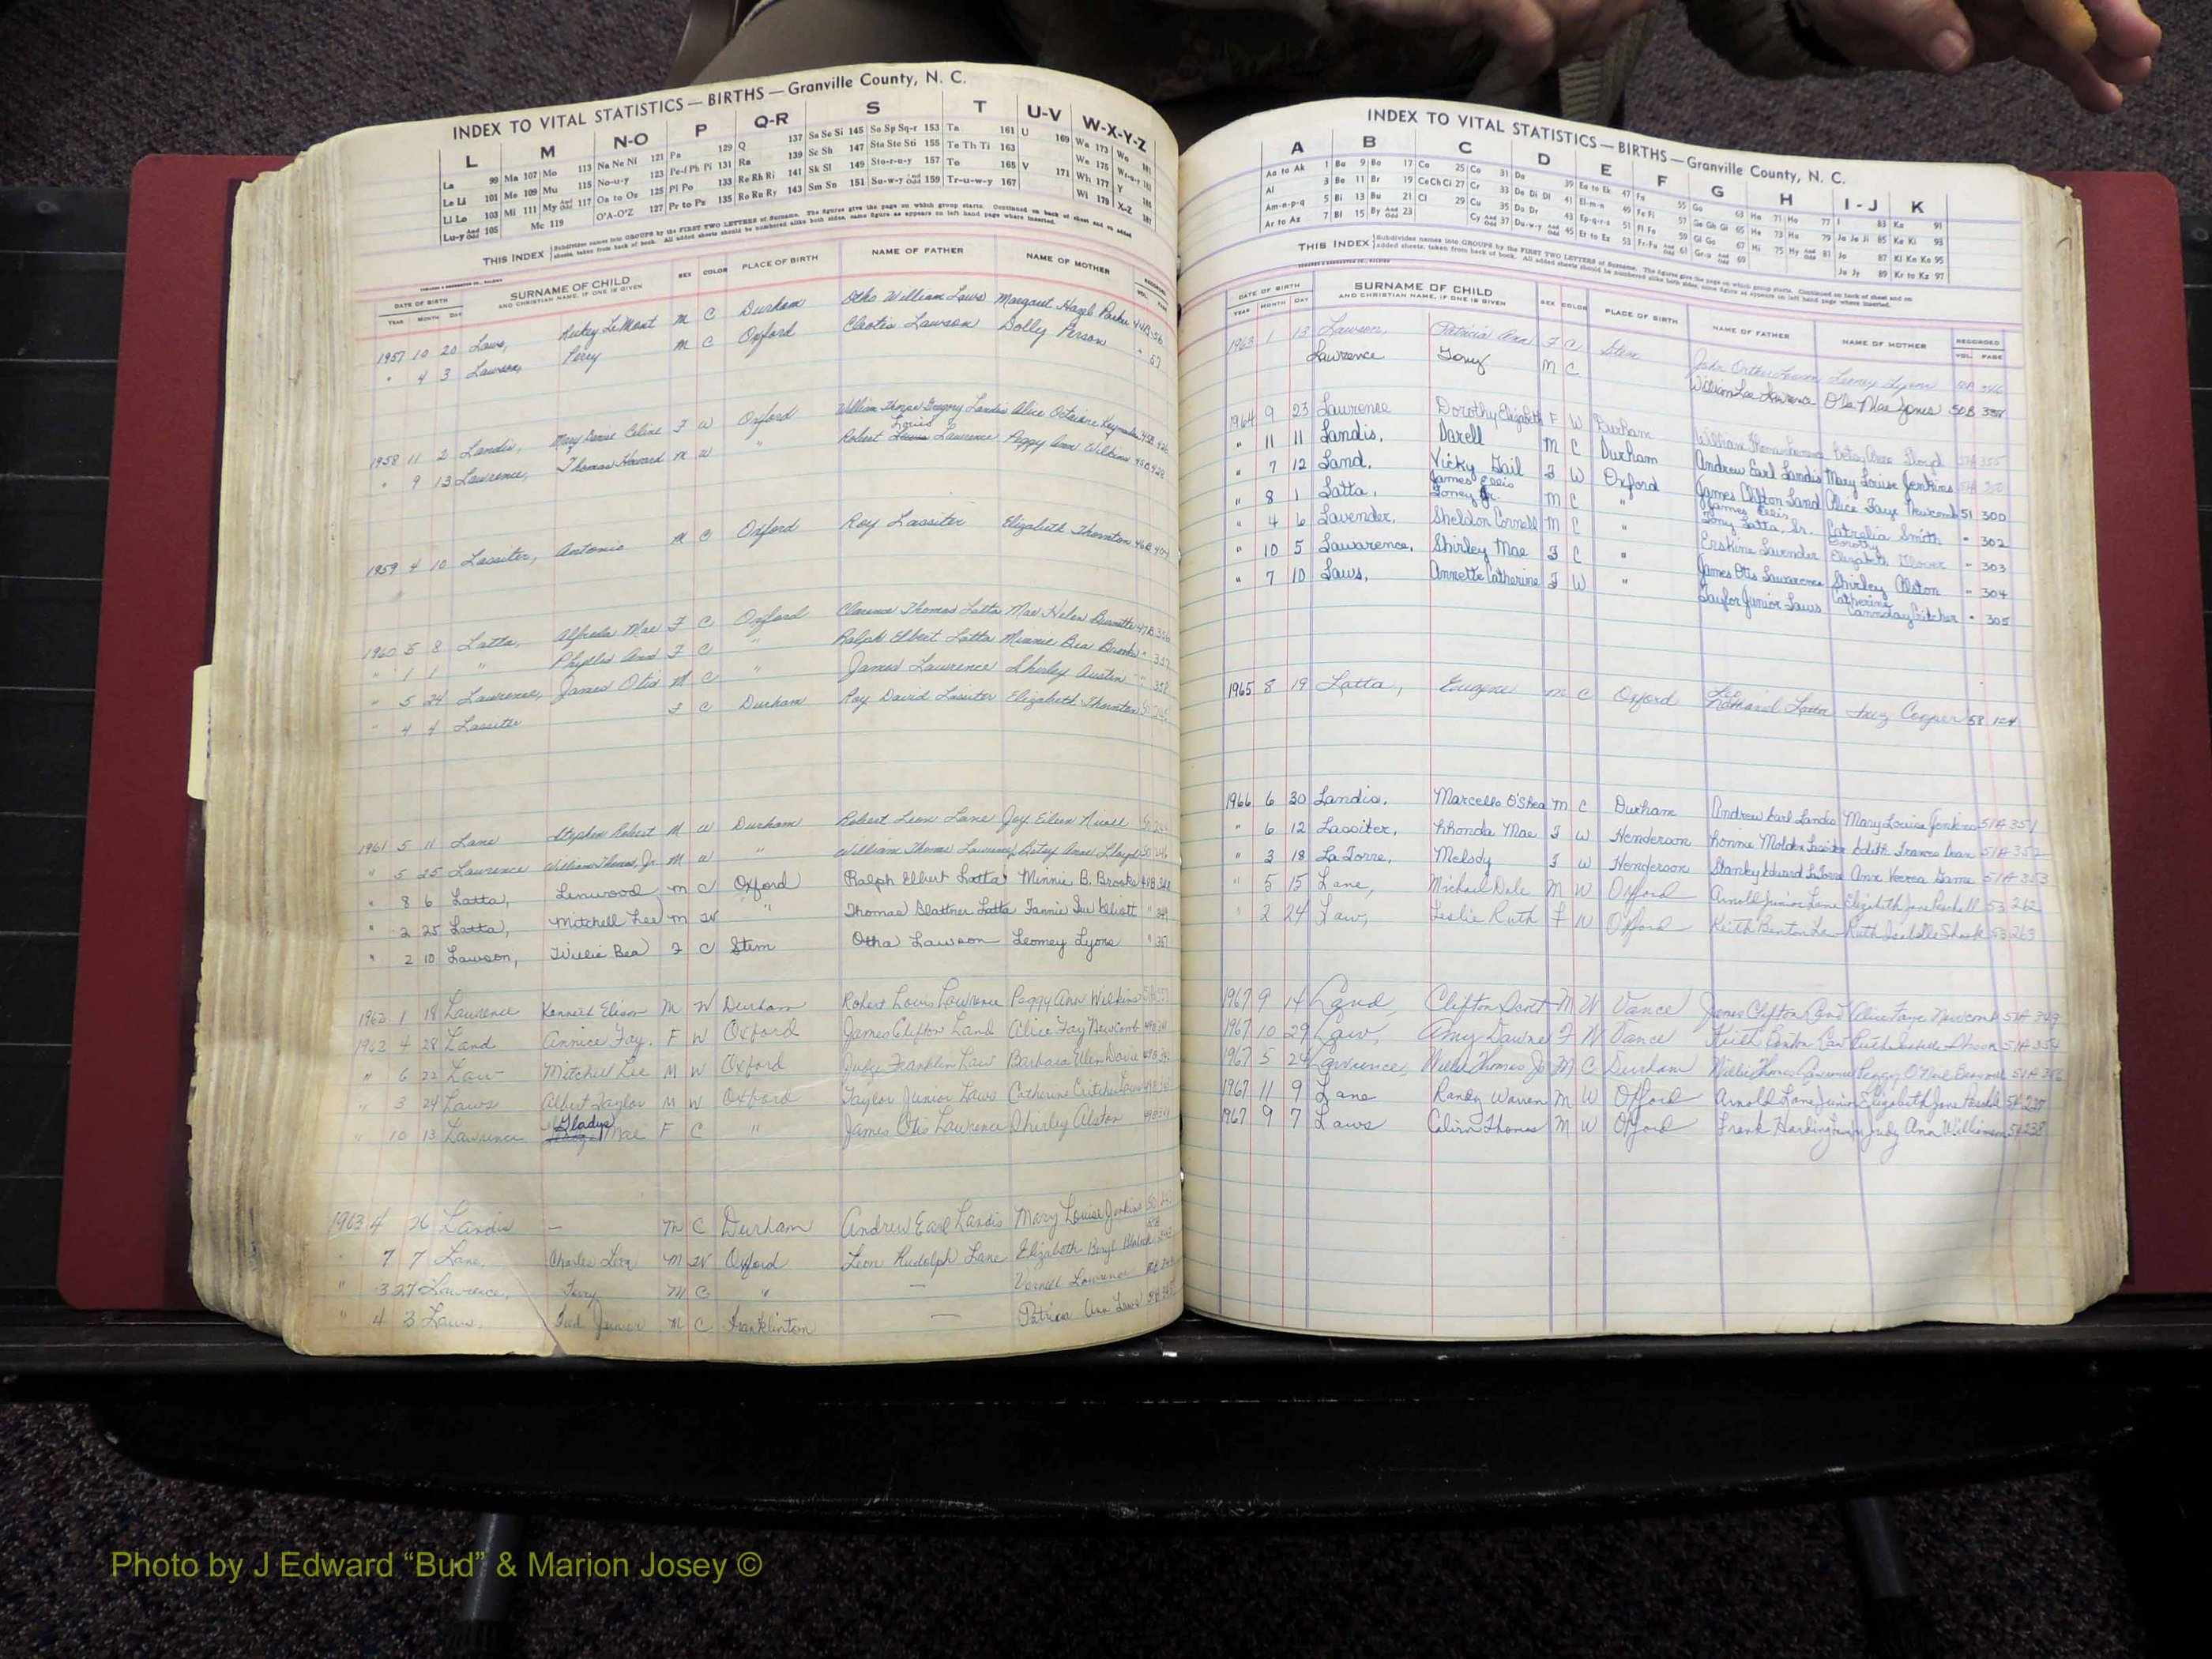 INDEX TO VITAL STATISTICS — BIRTHS — Granville County, N. C.
L M N-O P Q-R S T U-V W-X-Y-Z
La 99 Ma 107 Mo 113 Na Ne Ni 121 Pa 129 Q 137 Sa Se Si 145 So Sp Sq-r 153 Ta 161 U 169 Wa 173 Wo 181
Le Li 101 Me 109 Mu 115 No-u-y 123 Pe-f Ph Pi 131 Ra 139 Sc Sh 147 Sta Ste Sti 155 Te Th Ti 163 We 175
Ll Lo 103 Mi 111 My And Odd 117 Oa to Oz 125 Pl Po 133 Re Rh Ri 141 Sk Sl 149 Sto-r-u-y 157 To 165 V 171 Wh 177 Y
Lu-y And Odd 105 Mc 119 O'A-O'Z 127 Pr to Pz 135 Ro Ru Ry 143 Sm Sn 151 Su-w-y And Odd 159 Tr-u-w-y 167 Wi 179 X-Z 187
THIS INDEX Subdivides names into GROUPS by the FIRST TWO LETTERS of Surname. The figures give the page on which group starts. Continued on back of sheet and on added
sheets, taken from back of book. All added sheets should be numbered alike both sides, same figure as appears on left hand page where inserted.
DATE OF BIRTH SURNAME OF CHILD SEX COLOR PLACE OF BIRTH NAME OF FATHER NAME OF MOTHER RECORDED
YEAR MONTH DAY AND CHRISTIAN NAME, IF ONE IS GIVEN VOL. PAGE
1957 10 20 Laws, Rickey LeMont M C Durham Otho William Laws Margaret Hazel Parker 44B 56
" 4 3 Lawson, Perry M C Oxford Cleotis Lawson Dolly Person " 57
1958 11 2 Landis, Mary Denise Celine F W Oxford William Thomas Gregory Landis Alice Octaviane
" 9 13 Lawrence, Thomas Howard M W " Robert Louis Lawrence Peggy Ann Wilkins 45B 428
1959 4 10 Lassiter, Antonio M C Oxford Roy Lassiter Elizabeth Thornton 46B 409
1960 5 8 Latta, Alfreda Mae F C Oxford Clarence Thomas Latta Mae Helen Burnette 47B
" 1 1 " Phyllis Ann F C " Ralph Elbert Latta Minnie Bea Brooks " 357
" 5 24 Lawrence, James Otis M C " James Lawrence Shirley Austin " 358
" 4 4 Lassiter F C Durham Roy David Lassiter Elizabeth Thornton
1961 5 11 Lane Stephen Robert M W Durham Robert Leon Lane Joy Eileen
" 5 25 Lawrence William Thomas, Jr. M W " William Thomas Lawrence Betsy Anne Lloyd 50 246
" 8 6 Latta, Linwood M C Oxford Ralph Elbert Latta Minnie B. Brooks 48B 348
" 2 25 Latta, Mitchell Lee M W " Thomas Blattner Latta Fannie Sue Elliott " 349
" 2 10 Lawson, Willie Bea F C Stem Otha Lawson Leomey Lyons " 351
1962 1 18 Lawrence Kenneth Elison M W Durham Robert Louis Lawrence Peggy Ann Wilkins
1962 4 28 Land Annice Fay. F W Oxford James Clifton Land Alice Fay Newcomb
" 6 22 Law Mitchell Lee M W Oxford Judge Franklin Law Barbara Ellen Davis
" 3 24 Laws Albert Taylor M W Oxford Taylor Junior Laws Catherine Critcher
" 10 13 Lawrence Gladys Mae F C " James Otis Lawrence Shirley Alston
1963 4 26 Landis — M C Durham Andrew Earl Landis Mary Louise Jenkins
" 7 7 Lane, Charles Leon M W Oxford Leon Rudolph Lane Elizabeth Beryl
" 3 27 Lawrence, Terry M C " — Vernell Lawrence
" 4 3 Laws, Fred Junior M C Franklinton — Patricia Ann Laws
INDEX TO VITAL STATISTICS — BIRTHS — Granville County, N. C.
A B C D E F G H I-J K
Aa to Ak 1 Ba 9 Bo 17 Ca 25 Co 31 Da 39 Ea to Ek 47 Fa 55 Ga 63 Ha 71 Ho 77 I 83 Ka 91
Al 3 Be 11 Br 19 Ce Ch Ci 27 Cr 33 De Di Dl 41 El-m-n 49 Fe Fi 57 Ge Gh Gi 65 He 73 Hu 79 Ja Je Ji 85 Ke Ki 93
Am-n-p-q 5 Bi 13 Bu 21 Cl 29 Cu 35 Do Dr 43 Ep-q-r-s 51 Fl Fo 59 Gl Go 67 Hi 75 Hy And Odd 81 Jo 87 Kl Kn Ko 95
Ar to Az 7 Bl 15 By And Odd 23 Cy And Odd 37 Du-w-y And Odd 45 Et to Ez 53 Fr-Fu And Odd 61 Gr-u And Odd 69 Ju Jy 89 Kr to Kz 97
THIS INDEX Subdivides names into GROUPS by the FIRST TWO LETTERS of Surname. The figures give the page on which group starts. Continued on back of sheet and on
added sheets, taken from back of book. All added sheets should be numbered alike both sides, same figure as appears on left hand page where inserted.
DATE OF BIRTH SURNAME OF CHILD SEX COLOR PLACE OF BIRTH NAME OF FATHER NAME OF MOTHER RECORDED
YEAR MONTH DAY AND CHRISTIAN NAME, IF ONE IS GIVEN VOL. PAGE
1963 1 13 Lawson, Patricia Ann F C Stem John Lawson Leomey Lyons 50A
Lawrence Tony M C William Lee Lawrence Ola Mae Jones 50B 338
1964 9 23 Lawrence Dorothy Elizabeth F W Durham William Thomas Lawrence Betsy Anne Lloyd 51A 355
" 11 11 Landis, Darell M C Durham Andrew Earl Landis Mary Louise Jenkins 51A
" 7 12 Land, Vicky Gail F W Oxford James Clifton Land Alice Faye Newcomb 51 300
" 8 1 Latta, James Ellis Toney Jr. M C " James Ellis Tony Latta, Sr. Catrelia Smith " 302
" 4 6 Lavender, Sheldon Cornell M C " Erskine Lavender Dorothy Elizabeth Glover " 303
" 10 5 Lawarence, Shirley Mae F C " James Otis Lawarence Shirley Alston " 304
" 7 10 Laws, Annette Catherine F W " Taylor Junior Laws Catherine Cannday Critcher " 305
1965 8 19 Latta, Eugene M C Oxford Latta Inez Cooper 52 124
1966 6 30 Landis, Marcello O'Shea M C Durham Andrew Earl Landis Mary Louise Jenkins 51A 351
" 6 12 Lassiter, Rhonda Mae F W Henderson Lonnie Molden Lassiter Edith Frances Dean 51A 352
" 3 18 La Torre, Melody F W Henderson Stanley Edward LaTorre Ann Verea Game 51A 353
" 5 15 Lane, Michael Dale M W Oxford Arnold Junior Lane Elizabeth Jane Paschall 53 262
" 2 24 Law, Leslie Ruth F W Oxford Keith Benton Law Ruth Isabelle Shook 53 263
1967 9 14 Land, Clifton Scott M W Vance James Clifton Land Alice Faye Newcomb 51A 349
1967 10 29 Law, Amy Dawne F W Vance Keith Benton Law Ruth Isabelle Shook 51A 354
1967 5 24 Lawrence, Willie Thomas Jr M C Durham Willie Thomas Lawrence Peggy O'Neal 51A 356
1967 11 9 Lane Randy Warren M W Oxford Arnold Lane Junior Elizabeth Jane Paschal 54 237
1967 9 7 Laws Calvin Thomas M W Oxford Frank Harkingham Judy Ann Williamson 54 238
Photo by J Edward “Bud” & Marion Josey ©